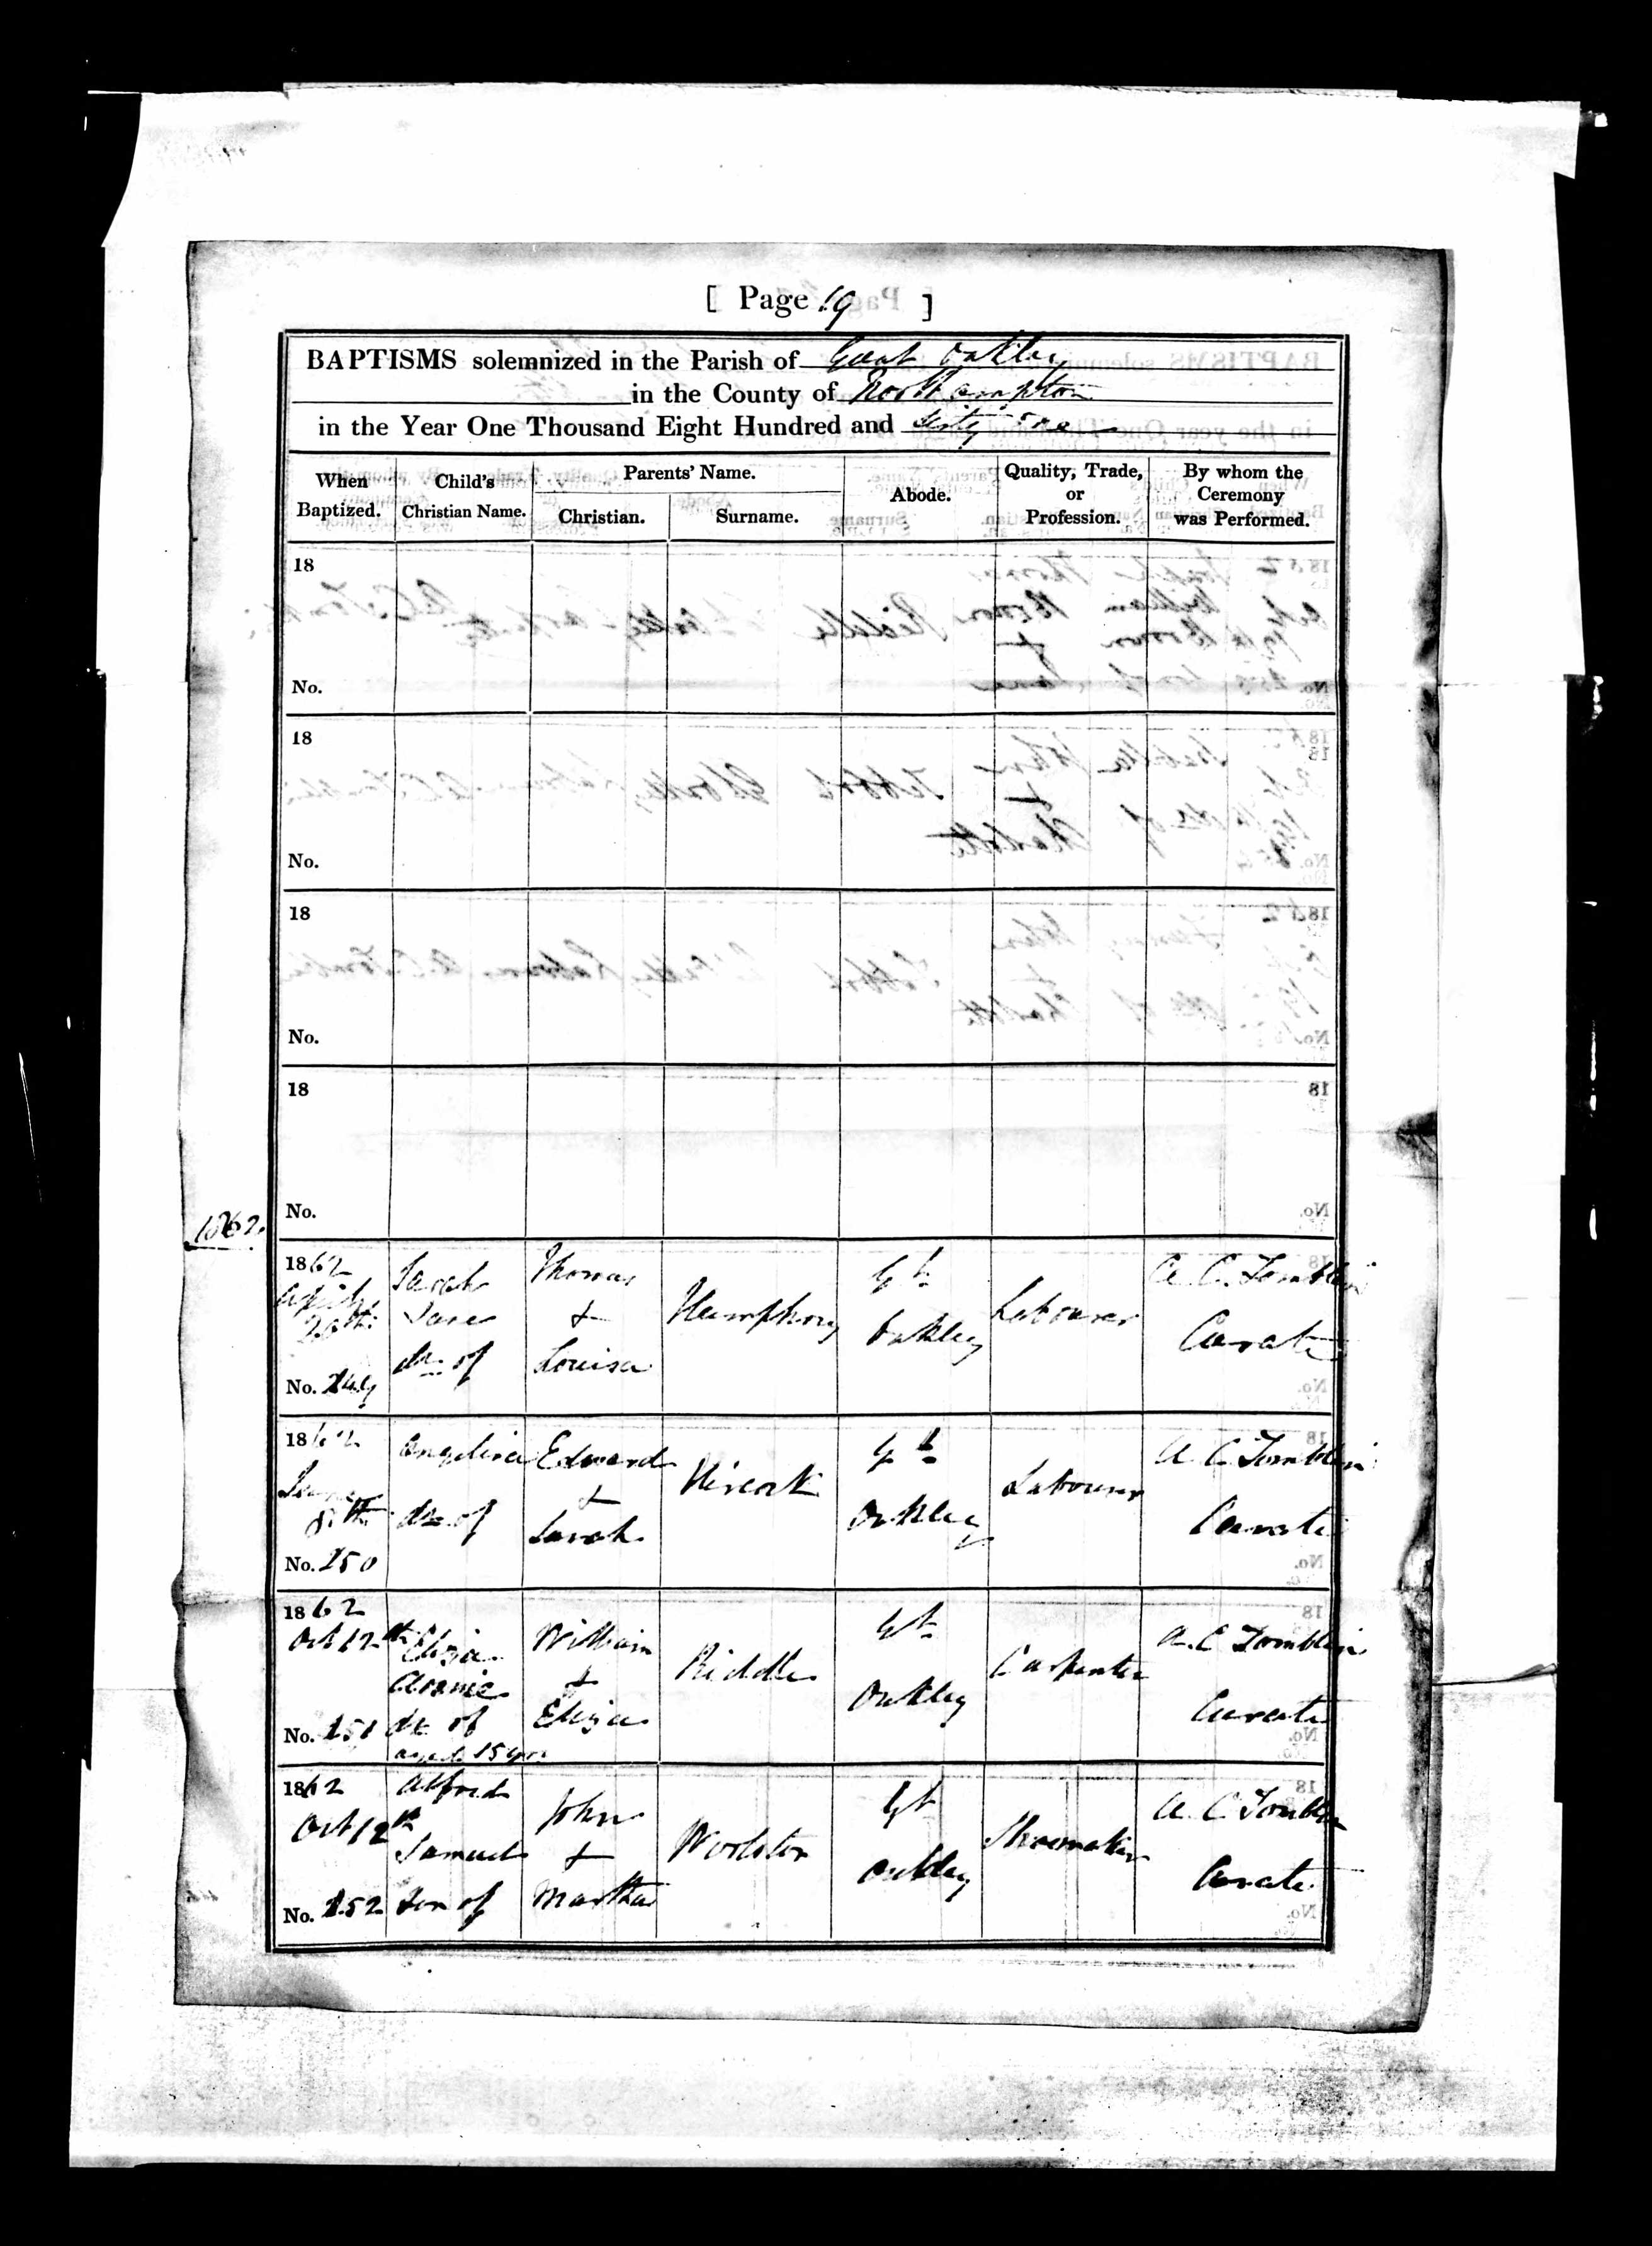 [ Page 19 ]
BAPTISMS solemnized in the Parish of Great Oakley
in the County of Northampton
in the Year One Thousand Eight Hundred and Sixty One
When Baptized. Child's Christian Name. Parents' Name. Abode. Quality, Trade, or Profession. By whom the Ceremony was Performed.
Christian. Surname.
18
No.
18
No.
18
No.
18
No.
1862.
1862 Sarah Thomas Gt A. C. Tomblin
April 20th Jane & Humphrey Oakley Labourer Curate
No. 149 dr of Louisa
1862 Angelina Edward Gt A C Tomblin
June & Labourer
8th dr of Sarah Oakley Curate
No. 150
1862 William Gt A. C Tomblin
Oct 12th Eliza & Riddle Carpenter
Annie Eliza Oakley Curate
No. 151 dr of
aged 15 yrs
1862 Alfred John Gt A C Tomblin
Oct 12th Samuel & Woolston Oakley Shoemaker Curate
No. 152 Son of Martha